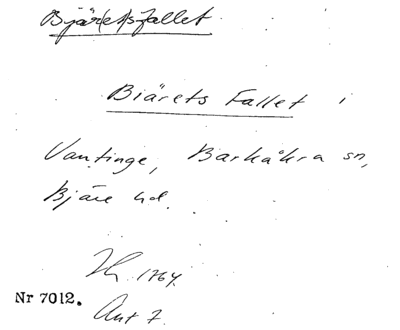 Bjäre(t)sfallet
Biärets Fallet i
Vantinge, Barkåkra sn,
Bjäre hd.
1764.
Nr 7012.
Ant 7.